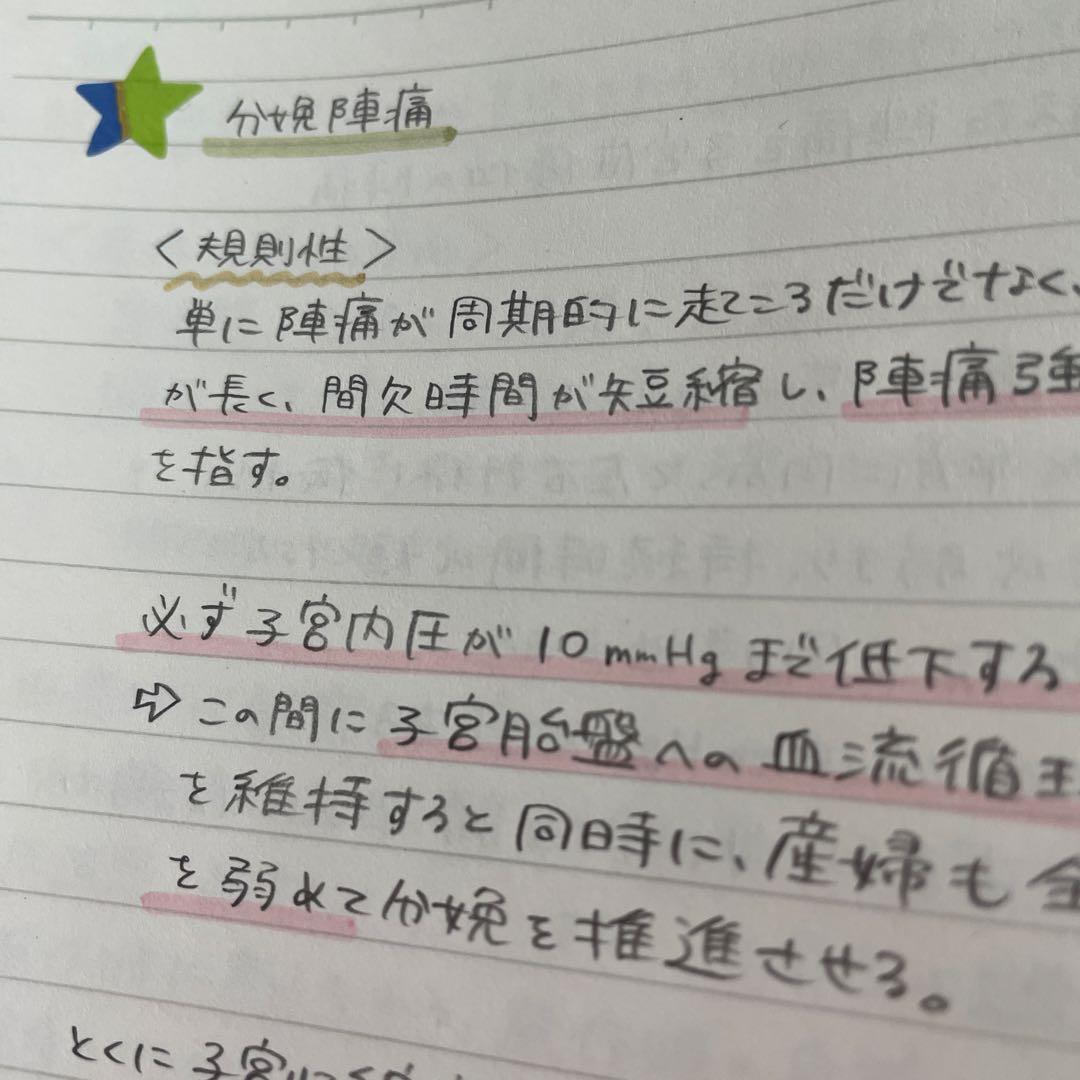 分娩陣痛
<規則性>
単に陣痛が周期的に起こるだけでなく、
が長く、間欠時間が短縮し、陣痛強
を指す。
必ず子宮内圧が10mmHgまで低下する
⇨この間に子宮胎盤への血流循
を維持すると同時に、産婦も全
を弱めて分娩を推進させる。
とくに子宮